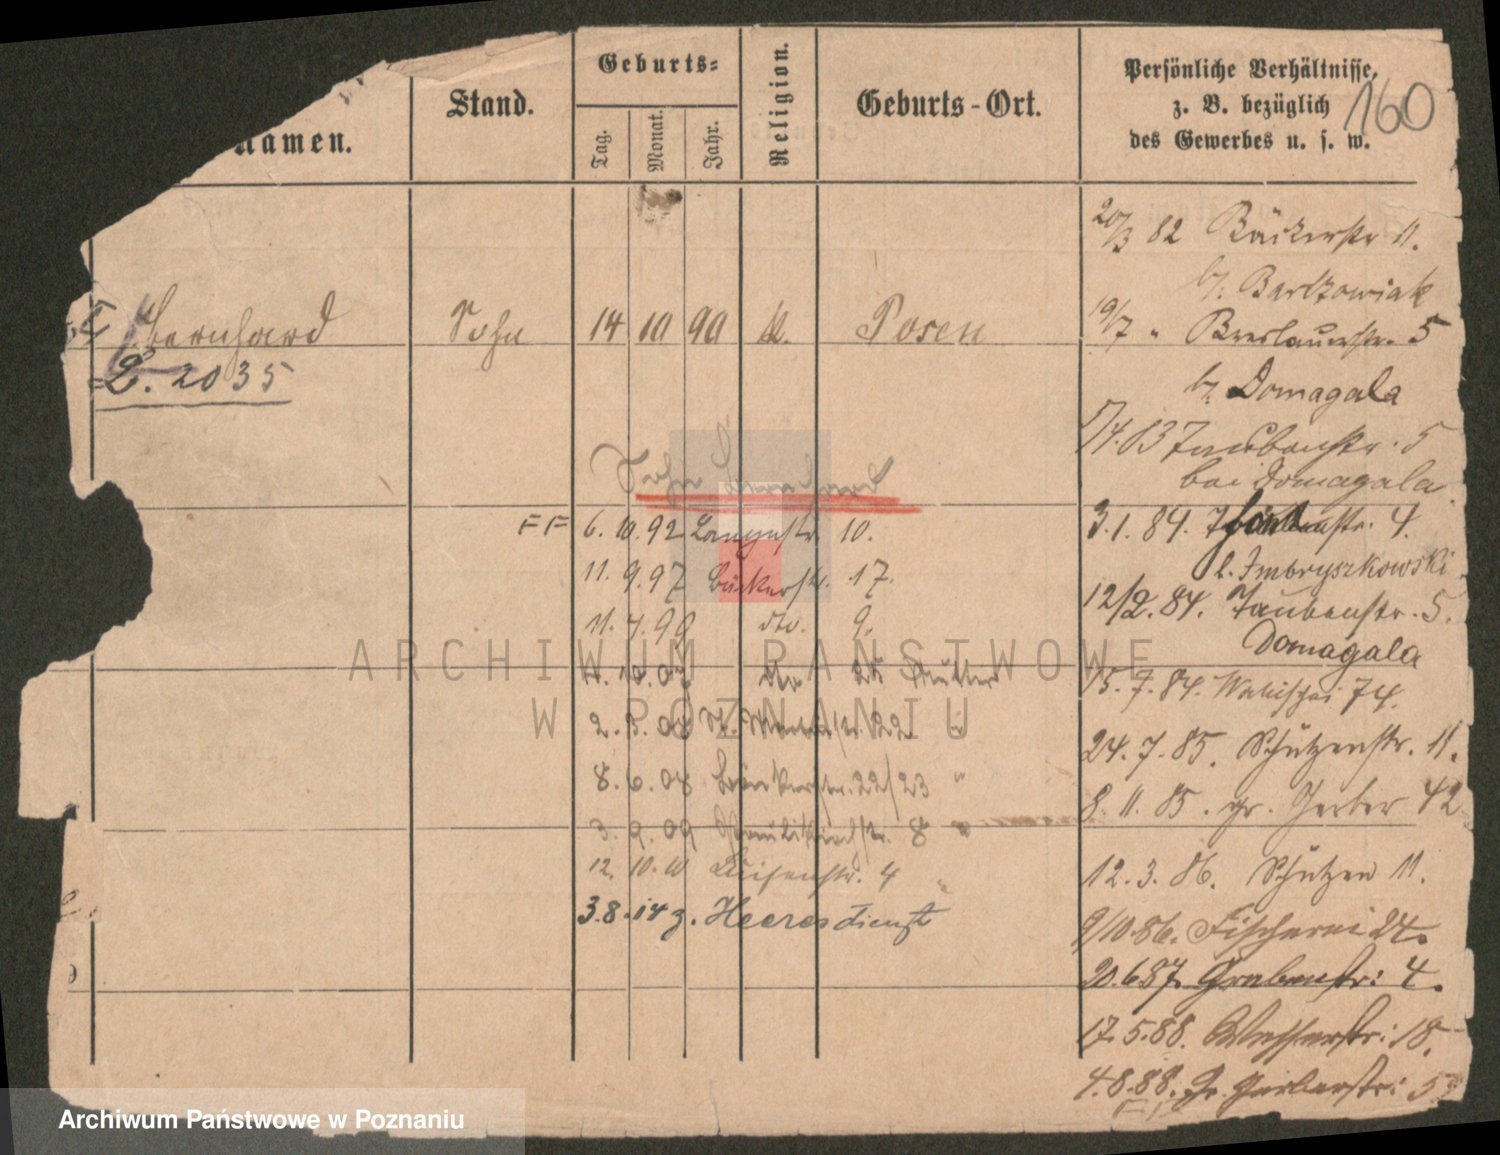 namen.
Stand.
Geburts=
Tag.
Monat.
Jahr.
Religion.
Geburts-Ort.
Persönliche Verhältnisse,
z. B. bezüglich
des Gewerbes u. s. w.
160
Bernhard Sohn 14 10 90 k. Posen
2035
Sohn Bernhard
6. 10. 92 Langestr. 10.
11. 9. 97 Bäckerstr. 17.
11. 7. 99 dto. 9.
dto Mutter
22
8. 6. 08 22/23 "
3. 9. 09 Paulikirchstr. 8 "
12. 10. 10 Luisenstr. 4 "
3.8.14 z. Heeresdienst
20/3 82 Bäckerstr 11.
b/. Bartkowiak
19/7 " Breslauerstr. 5
b/. Domagala
Taubenstr. 5
bei Domagala
3.1.84. 4.
b. Imbryszkowski
12/2.84. Taubenstr. 5.
Domagala
15.7.84. Wallischei 74.
24.7.85. Schützenstr. 11.
8.11.85. gr. Gerber 42
12.3.86. Schützen 11.
9/10.86. Fischerei 24.
20.6.87. Grabenstr: 4.
17.5.88. 18.
4.8.88. Gr. Gerberstr:
ARCHIWUM PAŃSTWOWE
W POZNANIU
Archiwum Państwowe w Poznaniu